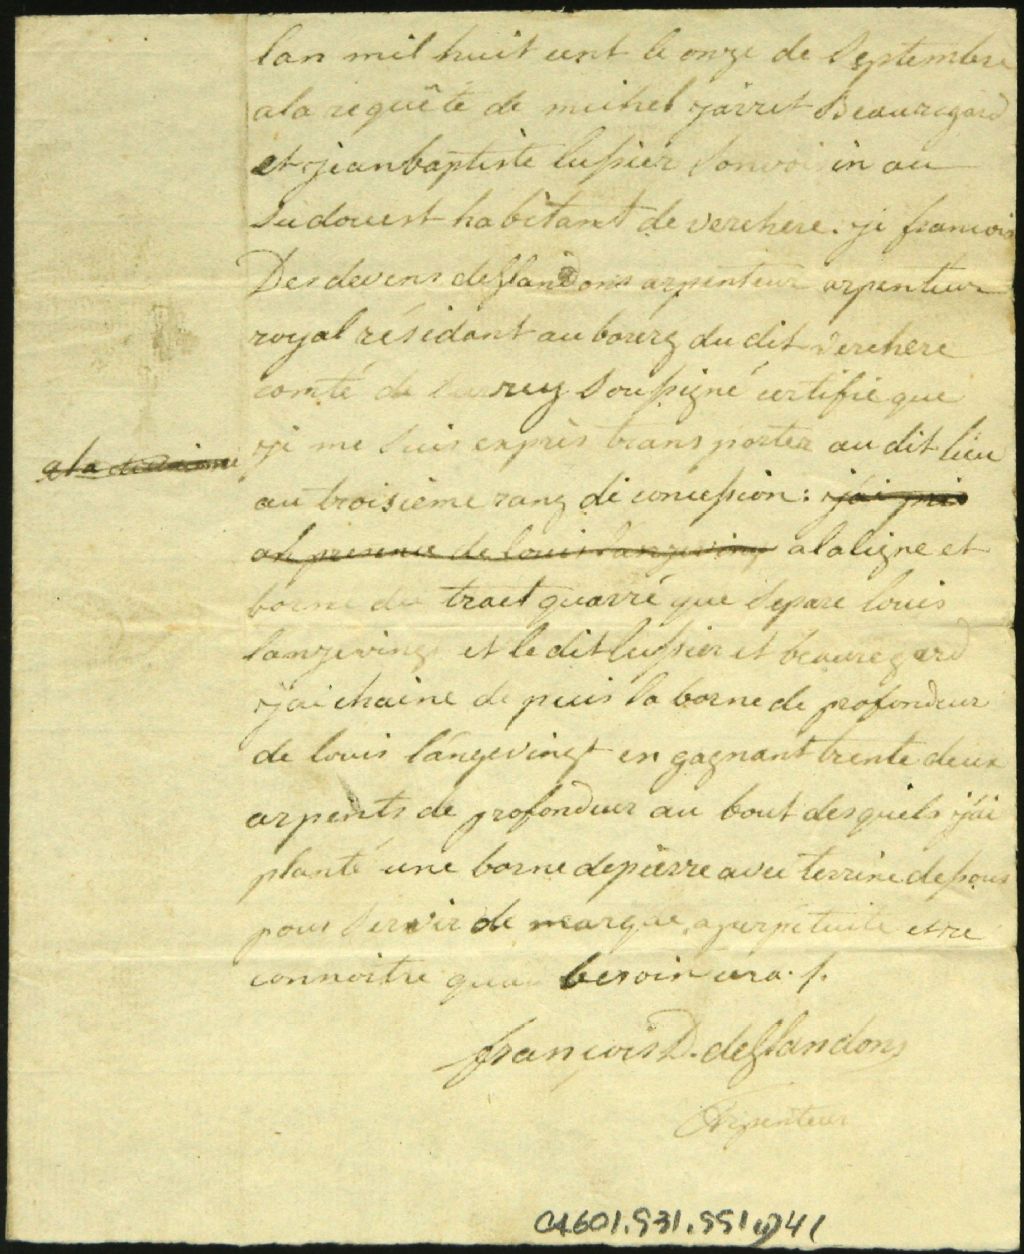 lan mil huit cent le onze de Septembre
a la requête de michel jarret Beauregard
et jean baptiste lussier Son voisin au
Sudouest habitant de verchere. je francois
Desdevens deglandons arpenteur arpenteur
royal résidant au bourg du dit verchere
comté de Surrey Soussigné certifie que
je me Suis exprès transporter au dit lieu
au troisième rang de concession: j'ai pris
en presence de louis langeving a la ligne et
borne du traet quarré que Separe louis
langeving et le dit lussier et beauregard
j'ai chaine de puis la borne de profondeur
de louis langevingt en gagnant trente deux
arpents de profondeur au bout desquels j'ai
planté une borne de pierre avec terrine dessous
pour Servir de marque, a perpetuite et re
connoitre quan besoin cera./.
françois D. deglandons
Arpenteur
a la
CA601.S31.SS1,D41